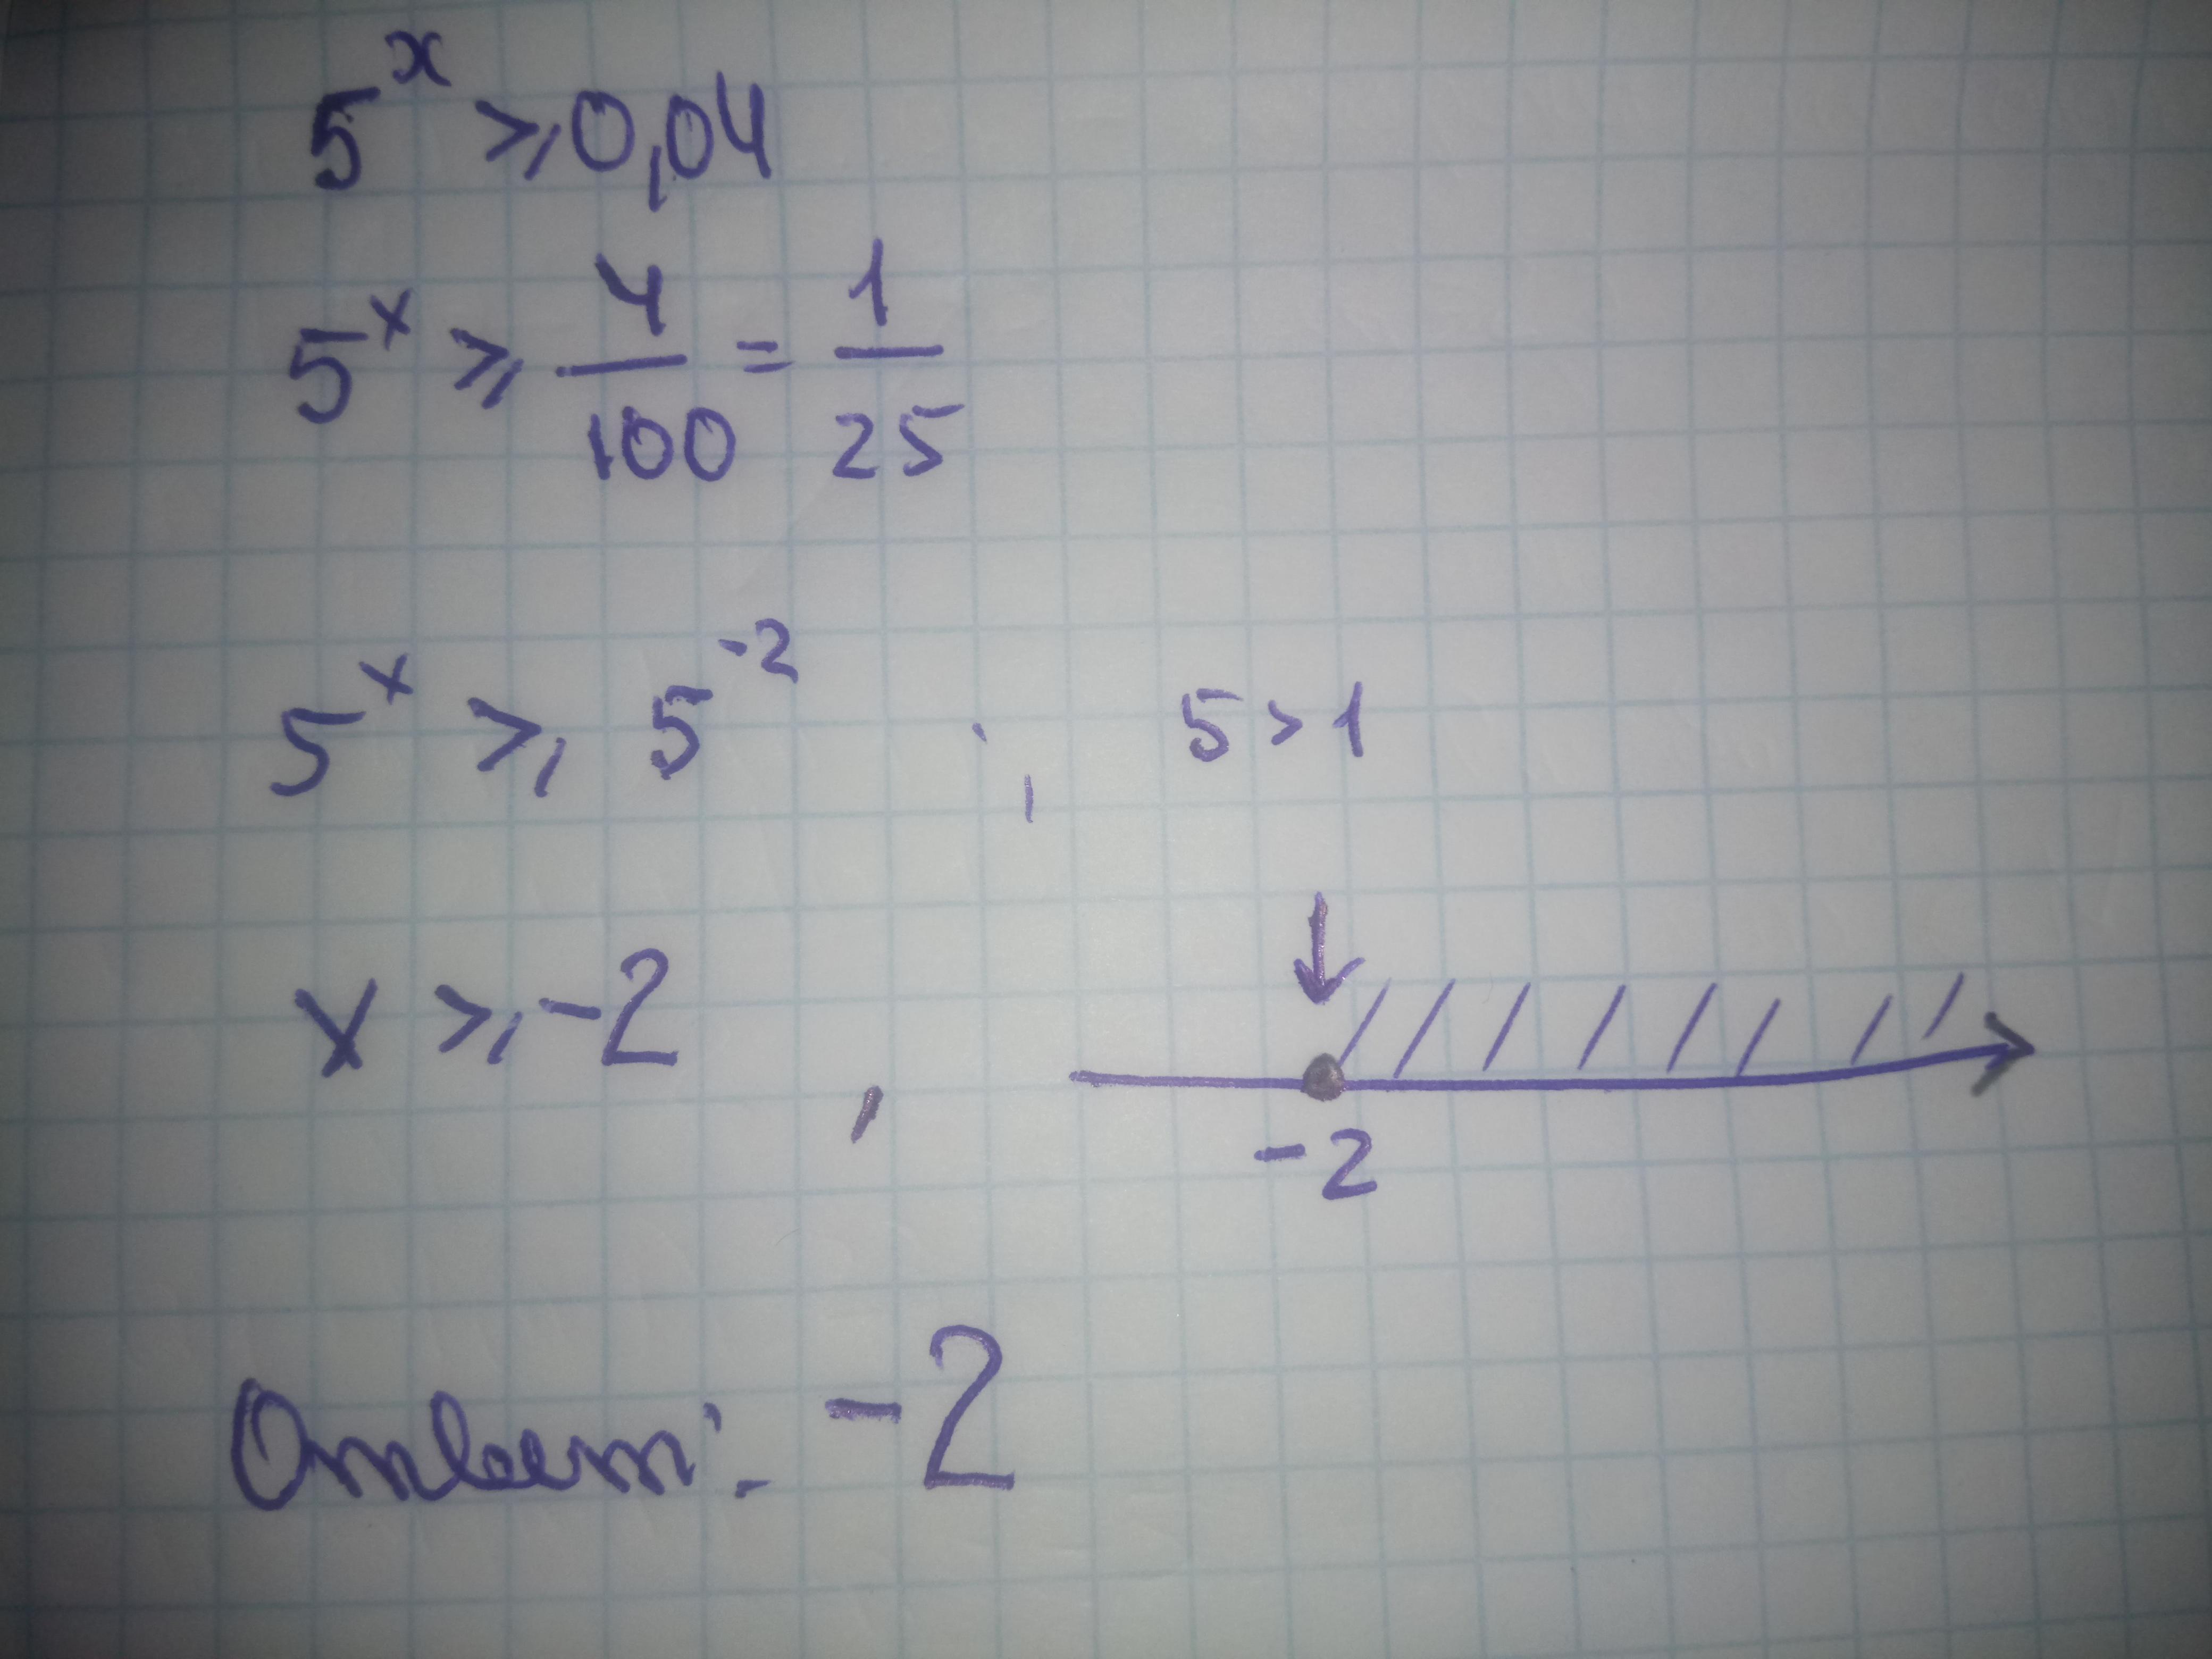 5^x ⩾ 0,04
5^x ⩾ 4/100 = 1/25
5^x ⩾ 5^-2 , 5 > 1
x ⩾ -2 ,
-2
Ответ: -2